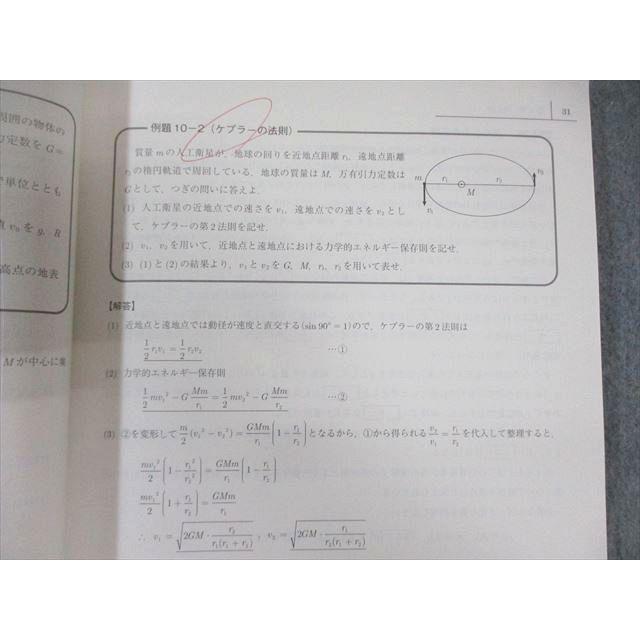 周囲の物体の
力定数を G＝
単位ととも
v₀ を g, R
高点の地表
M が中心に集
31
例題 10－2（ケプラーの法則）
質量 m の人工衛星が，地球の回りを近地点距離 r₁，遠地点距離
r₂ の楕円軌道で周回している．地球の質量は M，万有引力定数は
G として，つぎの問いに答えよ．
(1) 人工衛星の近地点での速さを v₁，遠地点での速さを v₂ とし
て，ケプラーの第 2 法則を記せ．
(2) v₁，v₂ を用いて，近地点と遠地点における力学的エネルギー保存則を記せ．
(3) (1) と (2) の結果より，v₁ と v₂ を G，M，r₁，r₂ を用いて表せ．
m r₁ r₂ v₂
M
v₁
【解答】
(1) 近地点と遠地点では動径が速度と直交する (sin 90° = 1) ので，ケプラーの第 2 法則は
1/2 r₁v₁ = 1/2 r₂v₂ …①
(2) 力学的エネルギー保存則
1/2 mv₁² − G Mm/r₁ = 1/2 mv₂² − G Mm/r₂ …②
(3) ②を変形して m/2 (v₁² − v₂²) = GMm/r₁ (1 − r₁/r₂) となるから，①から得られる v₂/v₁ = r₁/r₂ を代入して整理すると，
mv₁²/2 (1 − r₁²/r₂²) = GMm/r₁ (1 − r₁/r₂)
mv₁²/2 (1 + r₁/r₂) = GMm/r₁
∴ v₁ = √(2GM · r₂/(r₁(r₁ + r₂))) , v₂ = √(2GM · r₁/(r₂(r₁ + r₂)))